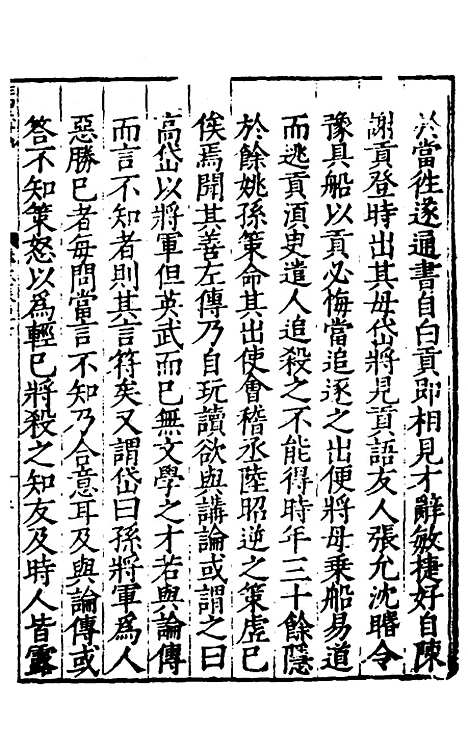 於當徃遂通書自白貢即相見才辭敏捷好自陳
謝貢登時出其母岱將見貢語友人張允沈䁕令
豫具船以貢必悔當追逐之出便將母乗船易道
而逃貢湏吏遣人追殺之不能得時年三十餘隱
於餘姚孫策命其出使會稽丞陸昭逆之策虚已
俟焉聞其善左傳乃自玩讀欲與講論或謂之曰
高岱以將軍但英武而已無文學之才若與論傳
而言不知者則其言符矣又謂岱曰孫將軍為人
惡勝已者毎問當言不知乃合意耳及與論傳或
答不知策怒以為輕已將殺之知友及時人皆露